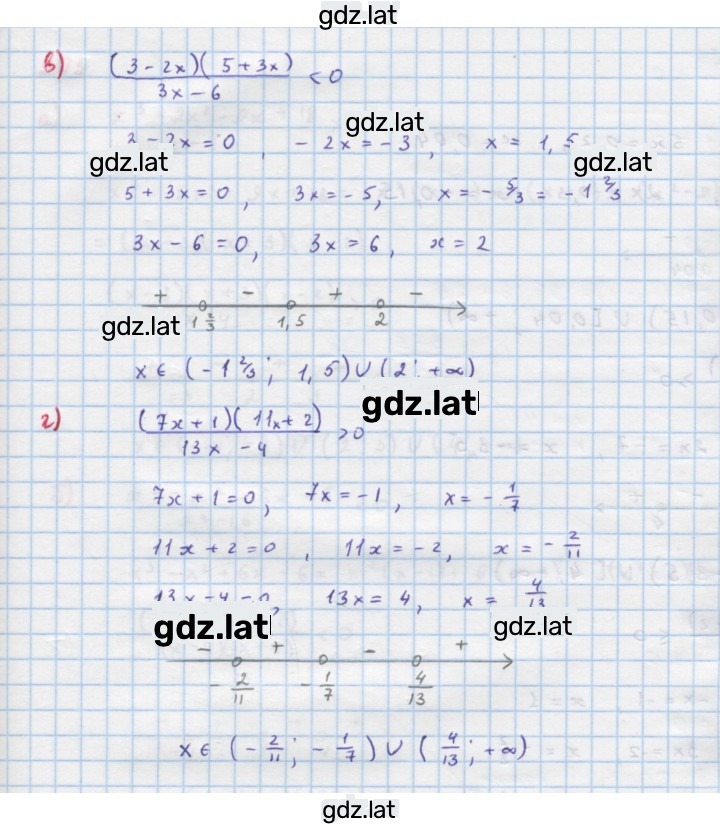 gdz.lat
в) (3 - 2x)(5 + 3x) / 3x - 6 < 0
gdz.lat
- 2x = 0, - 2x = - 3, x = 1,5
gdz.lat gdz.lat
5 + 3x = 0, 3x = - 5, x = - 5/3 = - 1 2/3
3x - 6 = 0, 3x = 6, x = 2
+ - + -
gdz.lat 1 2/3 1,5 2
x ∈ (- 1 2/3; 1,5) ∪ (2; +∞)
gdz.lat
г) (7x + 1)(11x + 2) / 13x - 4 > 0
7x + 1 = 0, 7x = - 1, x = - 1/7
11x + 2 = 0, 11x = - 2, x = - 2/11
13x - 4 = 0, 13x = 4, x = 4/13
gdz.lat gdz.lat
- + - +
- 2/11 - 1/7 4/13
x ∈ (- 2/11; - 1/7) ∪ (4/13; +∞)
gdz.lat